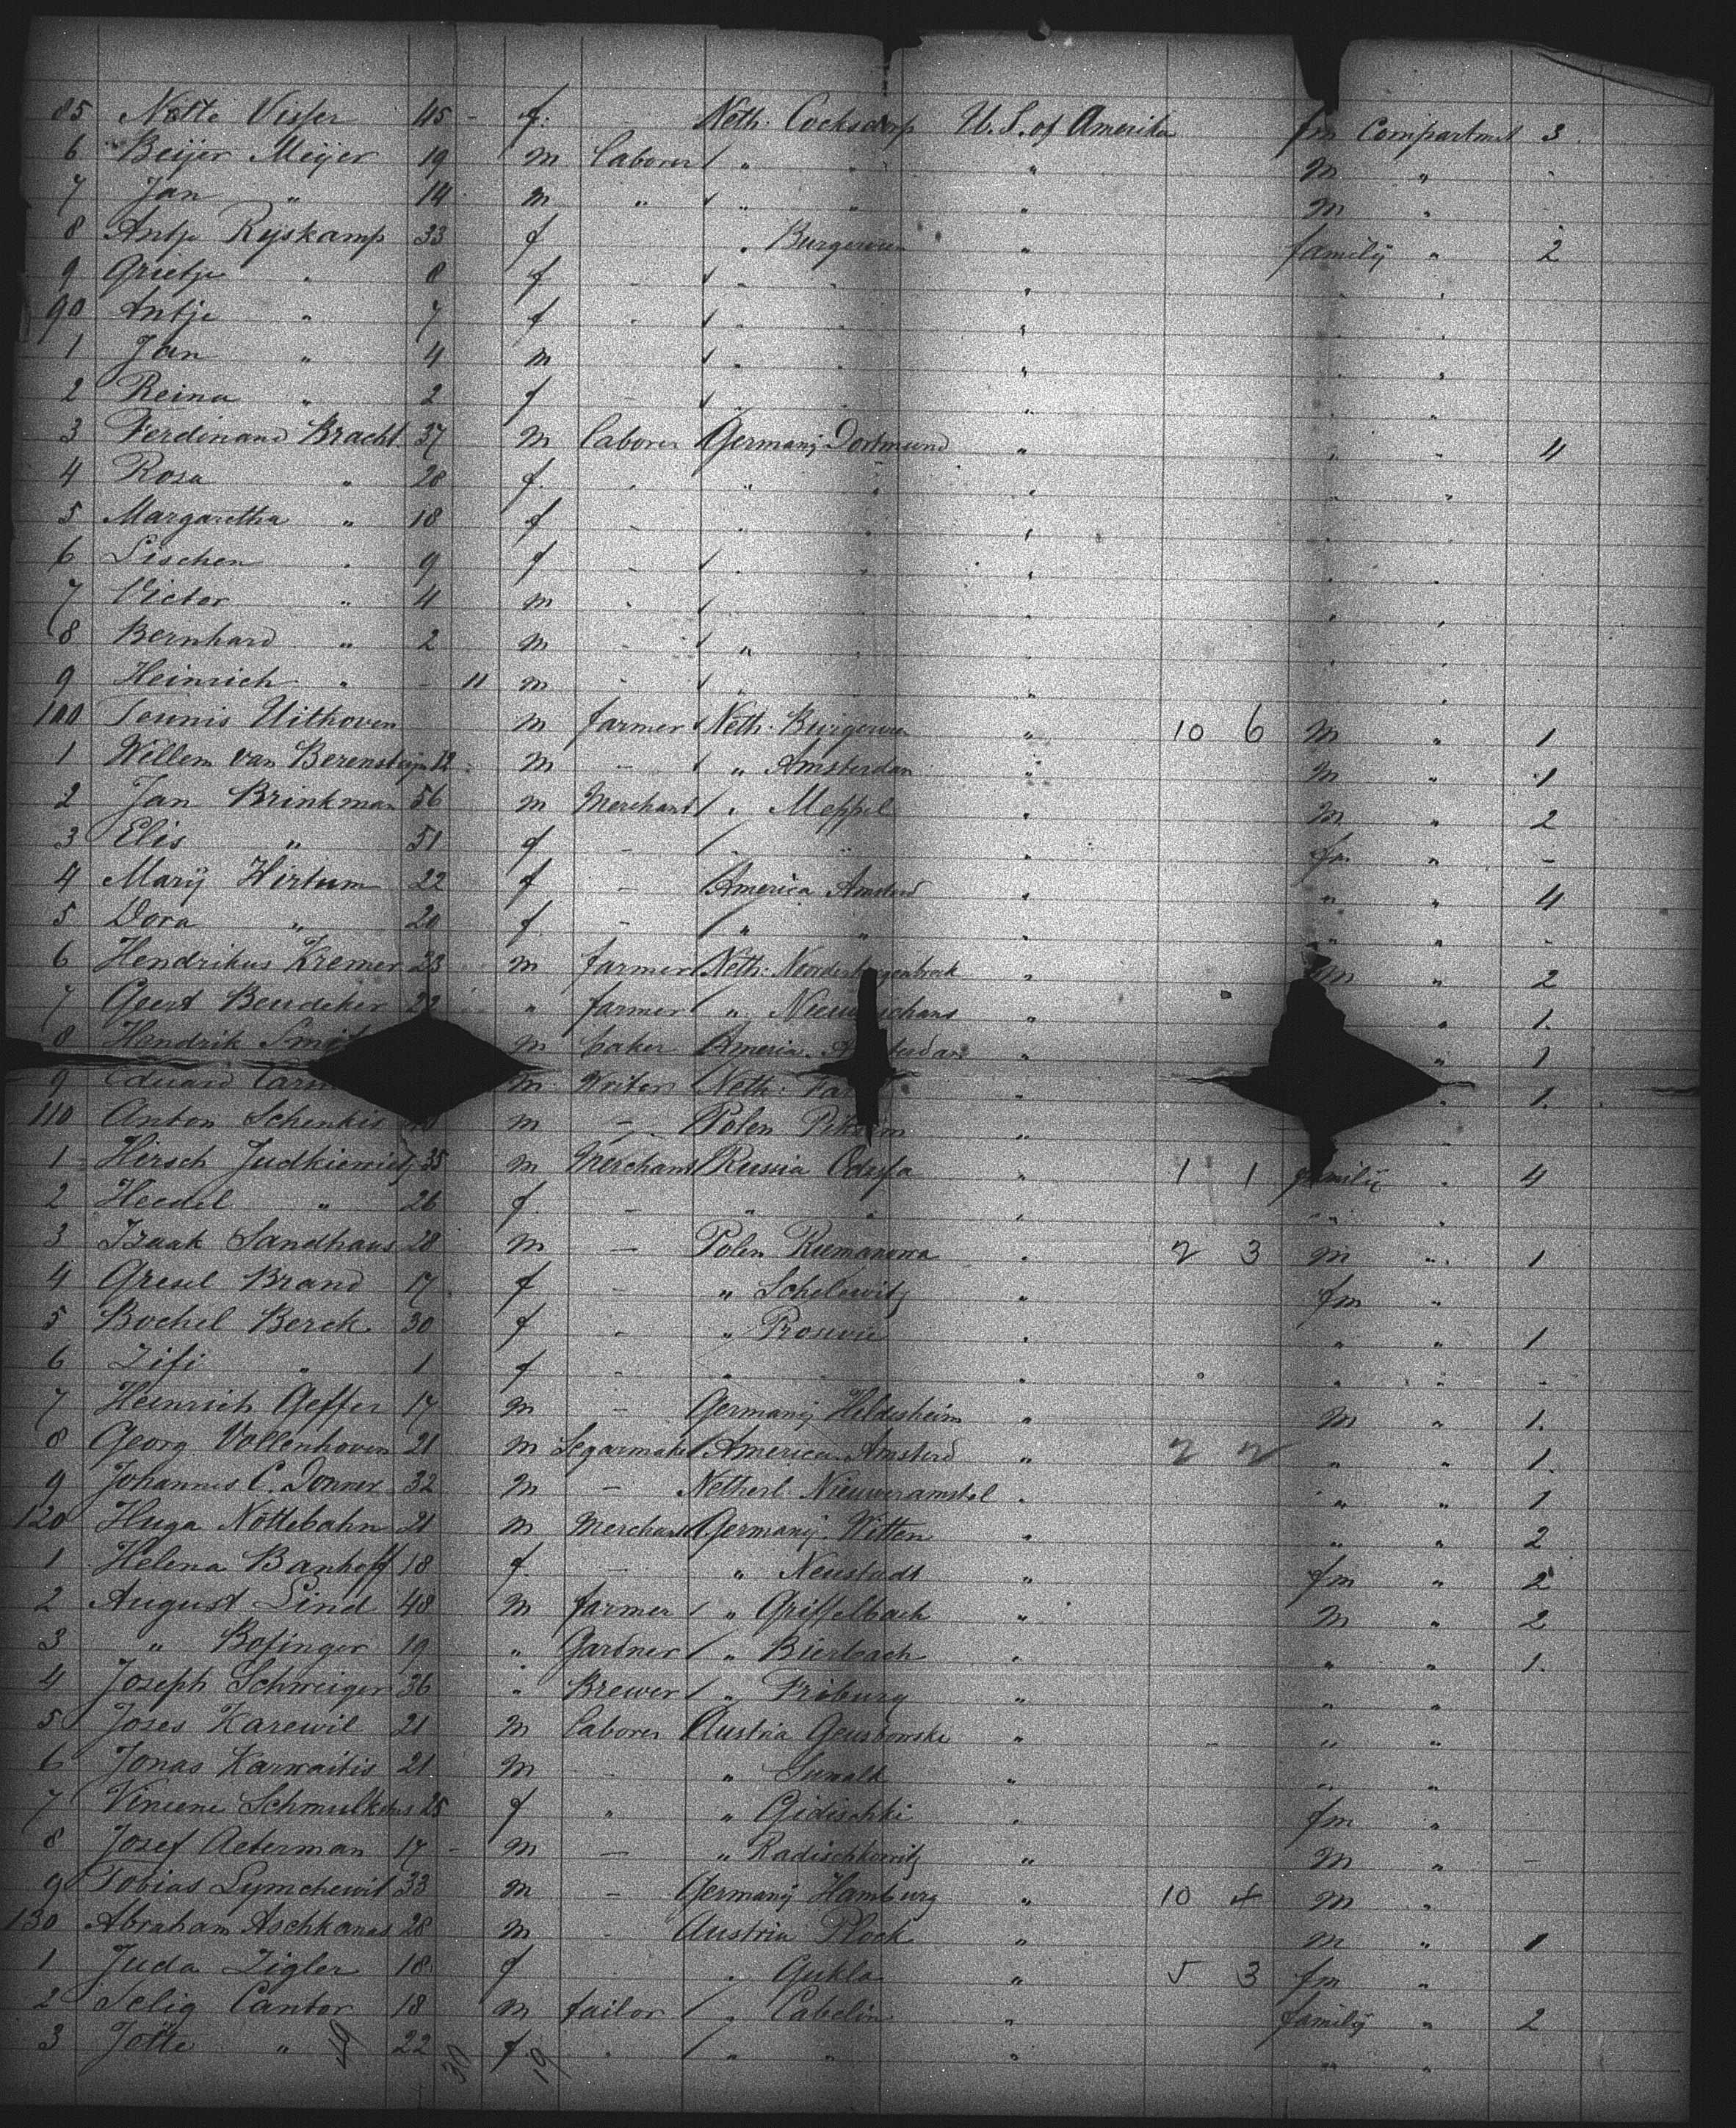 85 Nette Visser 45 - f. - Neth. Cocksdorp U.S. of Amerika fm Compartmet 3
6 Beijer Meijer 19 m laborer " " " m " -
7 Jan " 14 m " " " " m "
8 Antje Rijskamp 33 f " Burgerveen " familij " 2
9 Grietje " 8 f - " " " " "
90 Antje " 7 f - " " " " "
1 Jan " 4 m " " " " "
2 Reina " 2 f - " " " "
3 Ferdinand Bracht 37 m laborer Germany Dortmund " " " 4
4 Rosa " 28 f. " " " " " "
5 Margaretha " 18 f - " " " " "
6 Lischen " 9 f - " " " " "
7 Victor " 4 m " " "
8 Bernhard " 2 m " " " " "
9 Heinrich " - 11 m " " " "
100 Teunis Uithoven m farmer Neth. Burgerveen " 10 6 m " 1
1 Willem van Berensteijn 12 m - " Amsterdam " m " 1
2 Jan Brinkman 56 m Merchant " Meppel " m " 2
3 Elis " 51 f - " " " fm " -
4 Marij Hirtum 22 f - America Amsterd " " " 4
5 Dora " 20 f. - " " " " " -
6 Hendrikus Kremer 23 m farmer Neth. " m " 2
7 Geert Beudeker 22 " farmer " " " 1.
8 Hendrik m baker " " 1
9 Eduard m. Writer Neth. " 1.
110 Anton Schenkis m - Polen "
1 Hirsch Judkiewietz 35 m Merchant Russia Odessa " 1 1 familij " 4
2 Hendel " 26 f. - " " " " "
3 Izaak Sandhaus 28 m - Polen Rumanowa " 2 3 m " 1
4 Gresel Brand 17 f - " Schelewitz " fm "
5 Bochel Berek 30 f - " " " " 1
6 Zifi " 1 f - " " " " " -
7 Heinrich Geffer 17 m - Germanij Hildesheim " m " 1.
8 Georg Vollenhoven 21 m Segarmaker America Amsterd " 2 2 " " 1.
9 Johannes C. Donner 32 m - Netherl. Nieuweramstel " " " 1
120 Huga Nottebahn 21 m Merchant Germanij Witten " " " 2
1 Helena Banhoff 18 f. - " Neustadt " fm " 2
2 August Lind 48 m farmer " Griffelbach " m " 2
3 " Bofinger 19 " Gardner " Bierbach " " " 1.
4 Joseph Schweiger 36 " Brewer " Friburg " " "
5 Joses Karewil 21 m laborer Austria " - " "
6 Jonas Karwaitis 21 m - " Suwalk " " "
7 Vincene Schmulkehns 25 f " " Gidischki " fm "
8 Josef Aeterman 17 - m - " Radischkowitz " m " -
9 Tobias Lymchewit 33 m - Germanij Hamburg " 10 4 m "
130 Abraham Aschkanas 28 m - Austria Plock " m " 1
1 Juda Zigler 18 f " Gukla " 5 3 fm "
2 Selig Cantor 18 m tailor " Cabelin " familij " 2
3 Jotte " 22 f " " " " " "
19 30 19